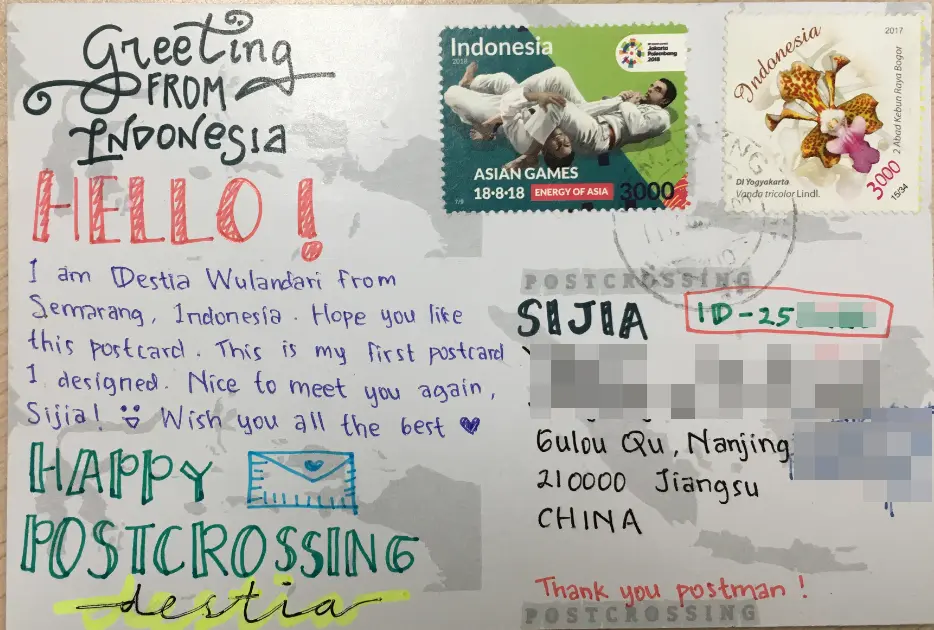 Greeting
FROM
INDONESIA
HELLO!
I am Destia Wulandari from
Semarang, Indonesia. Hope you like
this postcard. This is my first postcard
I designed. Nice to meet you again,
Sijia! Wish you all the best
HAPPY
POSTCROSSING
destia
Indonesia
2018
Jakarta
Palembang
2018
ASIAN GAMES
18•8•18 ENERGY OF ASIA 3000
Indonesia
2017
2 Abad Kebun Raya Bogor
DI Yogyakarta
Vanda tricolor Lindl.
3000
15/34
POSTCROSSING
SIJIA ID-25
Gulou Qu, Nanjing
210000 Jiangsu
CHINA
Thank you postman!
POSTCROSSING